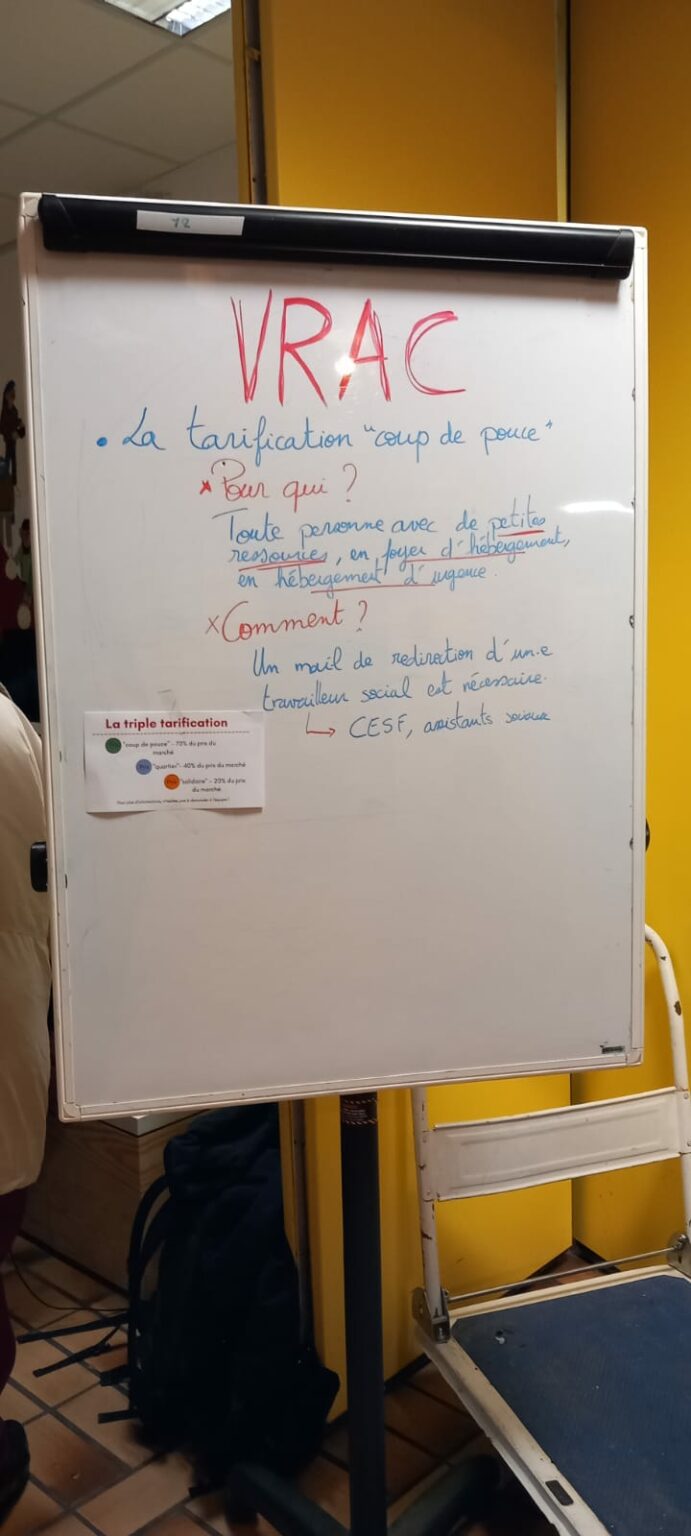 72
VRAC
• La tarification "coup de pouce"
x Pour qui ?
Toute personne avec de petites
ressources, en foyer d'hébergement,
en hébergement d'urgence.
x Comment ?
Un mail de redirection d'un·e
travailleur social est nécessaire.
↳ CESF, assistants sociaux
La triple tarification
"coup de pouce" - 70% du prix du
marché
Prix "quartier" - 40% du prix du marché
Prix "solidaire" - 20% du prix
du marché
Pour plus d'informations, n'hésitez pas à demander à l'équipe !